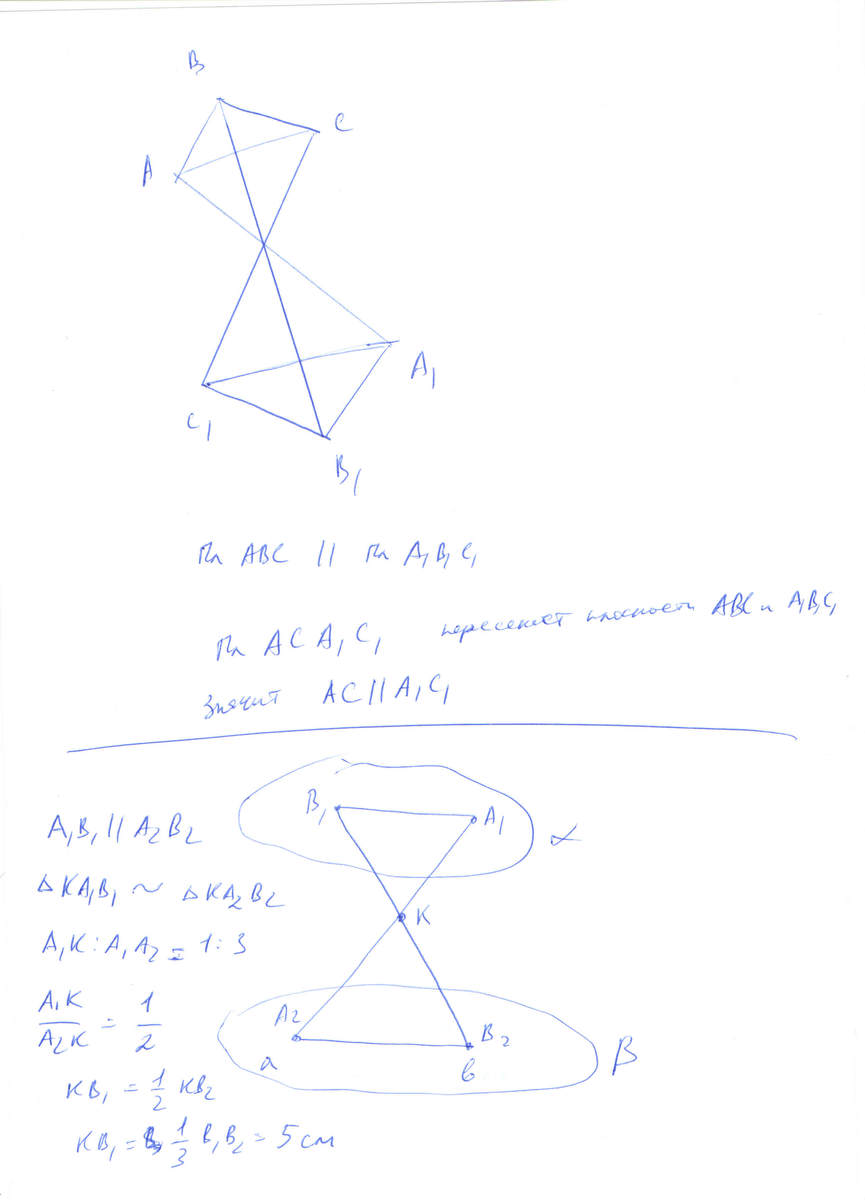 B
C
A
A₁
C₁
B₁
Пл ABC || пл A₁B₁C₁
Пл ACA₁C₁ пересекает плоскости ABC и A₁B₁C₁
Значит AC || A₁C₁
B₁
A₁
α
A₁B₁ || A₂B₂
△KA₁B₁ ~ △KA₂B₂
K
A₁K : A₁A₂ = 1 : 3
A₁K/A₂K = 1/2
A₂
B₂
a
в
β
KB₁ = 1/2 KB₂
KB₁ = 1/3 B₁B₂ = 5 см